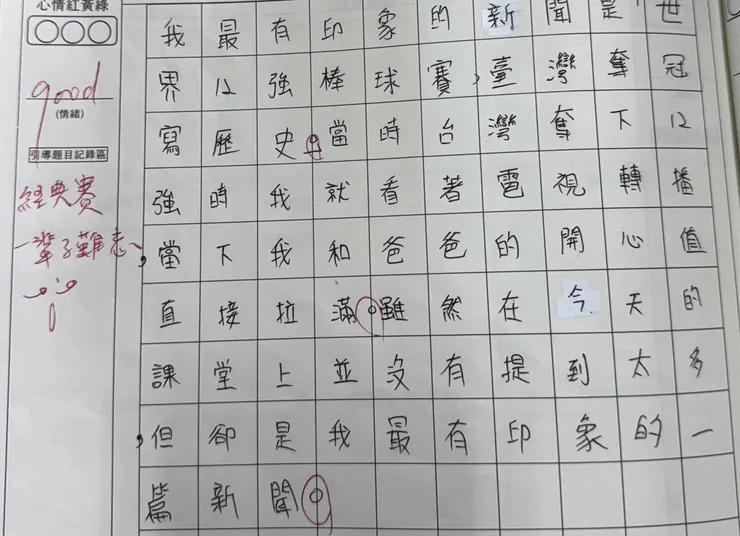 心情紅黃綠
good
(情緒)
引導題目記錄區
經典賽
一輩子難忘~
我最有印象的新聞是「世
界12強棒球賽,臺灣奪冠
寫歷史。當時台灣奪下12
強時我就看著電視轉播
,當下我和爸爸的開心值
直接拉滿。雖然在今天的
課堂上並沒有提到太多
,但卻是我最有印象的一
篇新聞。